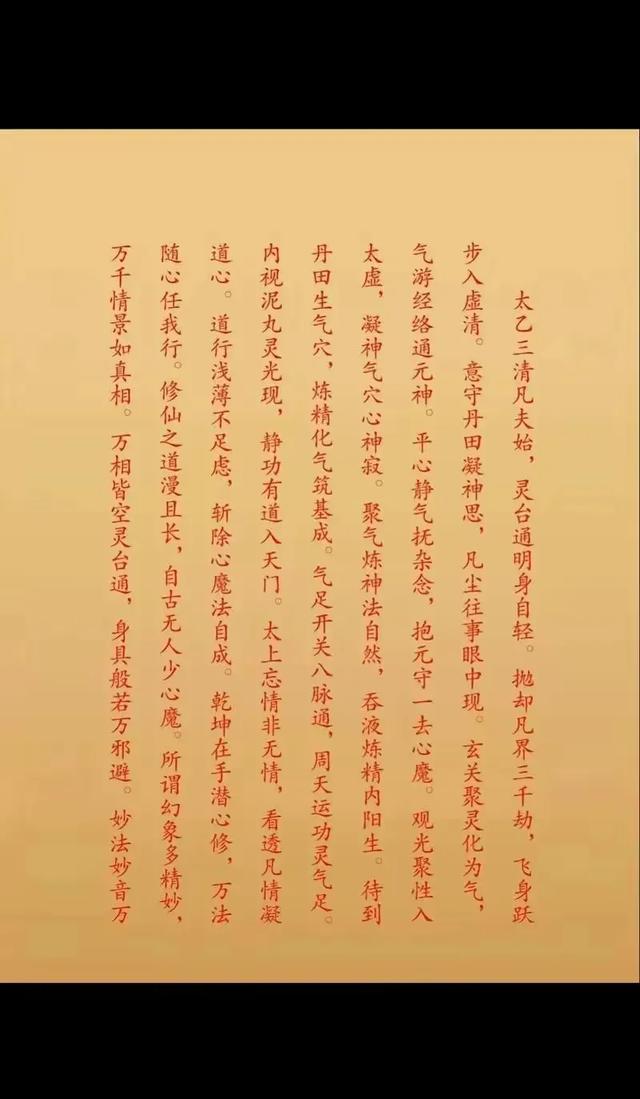 太乙三清凡夫始，灵台通明身自轻。抛却凡界三千劫，飞身跃
步入虚清。意守丹田凝神思，凡尘往事眼中现。玄关聚灵化为气，
气游经络通元神。平心静气抚杂念，抱元守一去心魔。观光聚性入
太虚，凝神气穴心神寂。聚气炼神法自然，吞液炼精内阳生。待到
丹田生气穴，炼精化气筑基成。气足开关八脉通，周天运功灵气足。
内视泥丸灵光现，静功有道入天门。太上忘情非无情，看透凡情凝
道心。道行浅薄不足虑，斩除心魔法自成。乾坤在手潜心修，万法
随心任我行。修仙之道漫且长，自古无人少心魔。所谓幻象多精妙，
万千情景如真相。万相皆空灵台通，身具般若万邪避。妙法妙音万